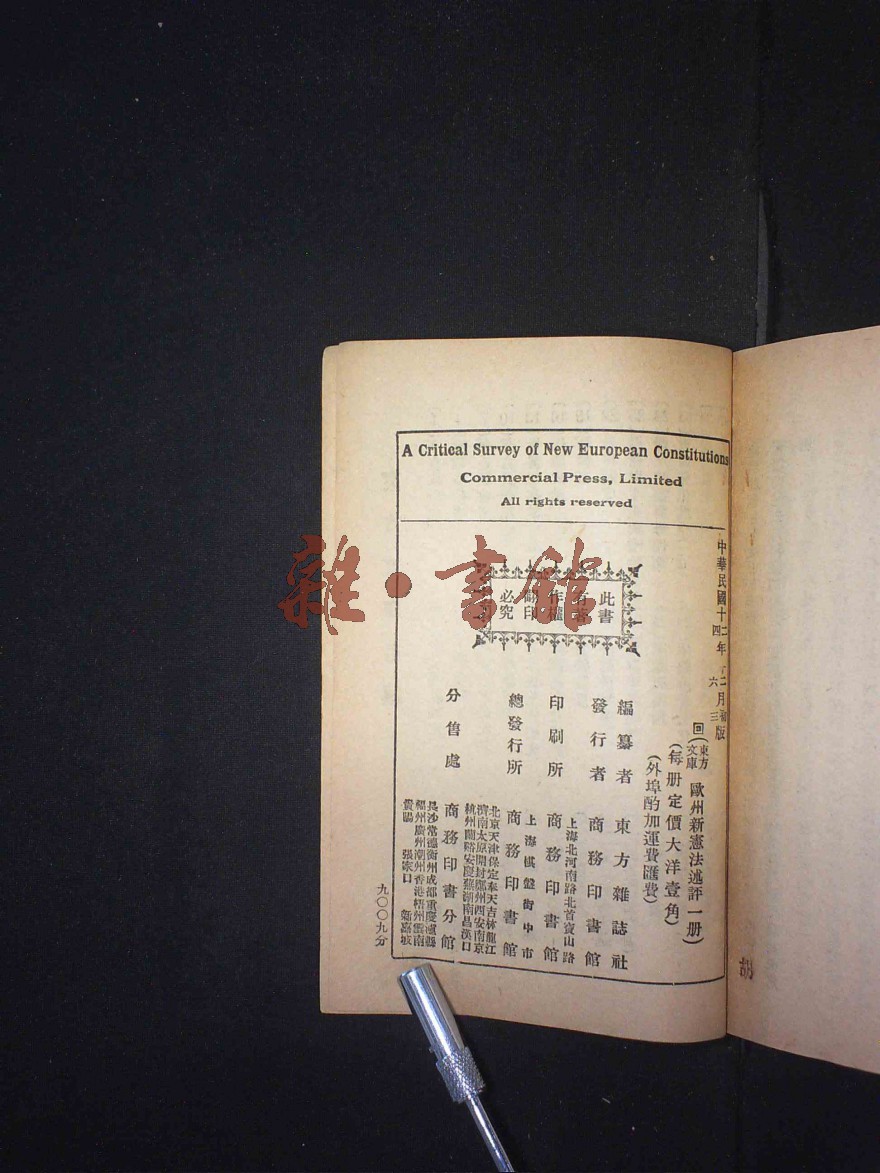 A Critical Survey of New European Constitutions
Commercial Press, Limited
All rights reserved
中華民國十二年十二月初版
四 六 三
回(東方文庫)歐州新憲法述評一册)
(每册定價大洋壹角)
(外埠酌加運費匯費)
此書
有著
作權
翻印
必究
編纂者 東方雜誌社
發行者 商務印書館
上海北河南路北首寶山路
印刷所 商務印書館
上海棋盤街中市
總發行所 商務印書館
北京天津保定奉天吉林龍江
濟南太原開封鄭州西安南京
杭州蘭谿安慶蕪湖南昌漢口
分售處 商務印書分館
長沙常德衡州成都重慶瀘縣
福州廣州潮州香港梧州雲南
貴陽 張家口 新嘉坡
九〇〇九分
雜·書館
胡